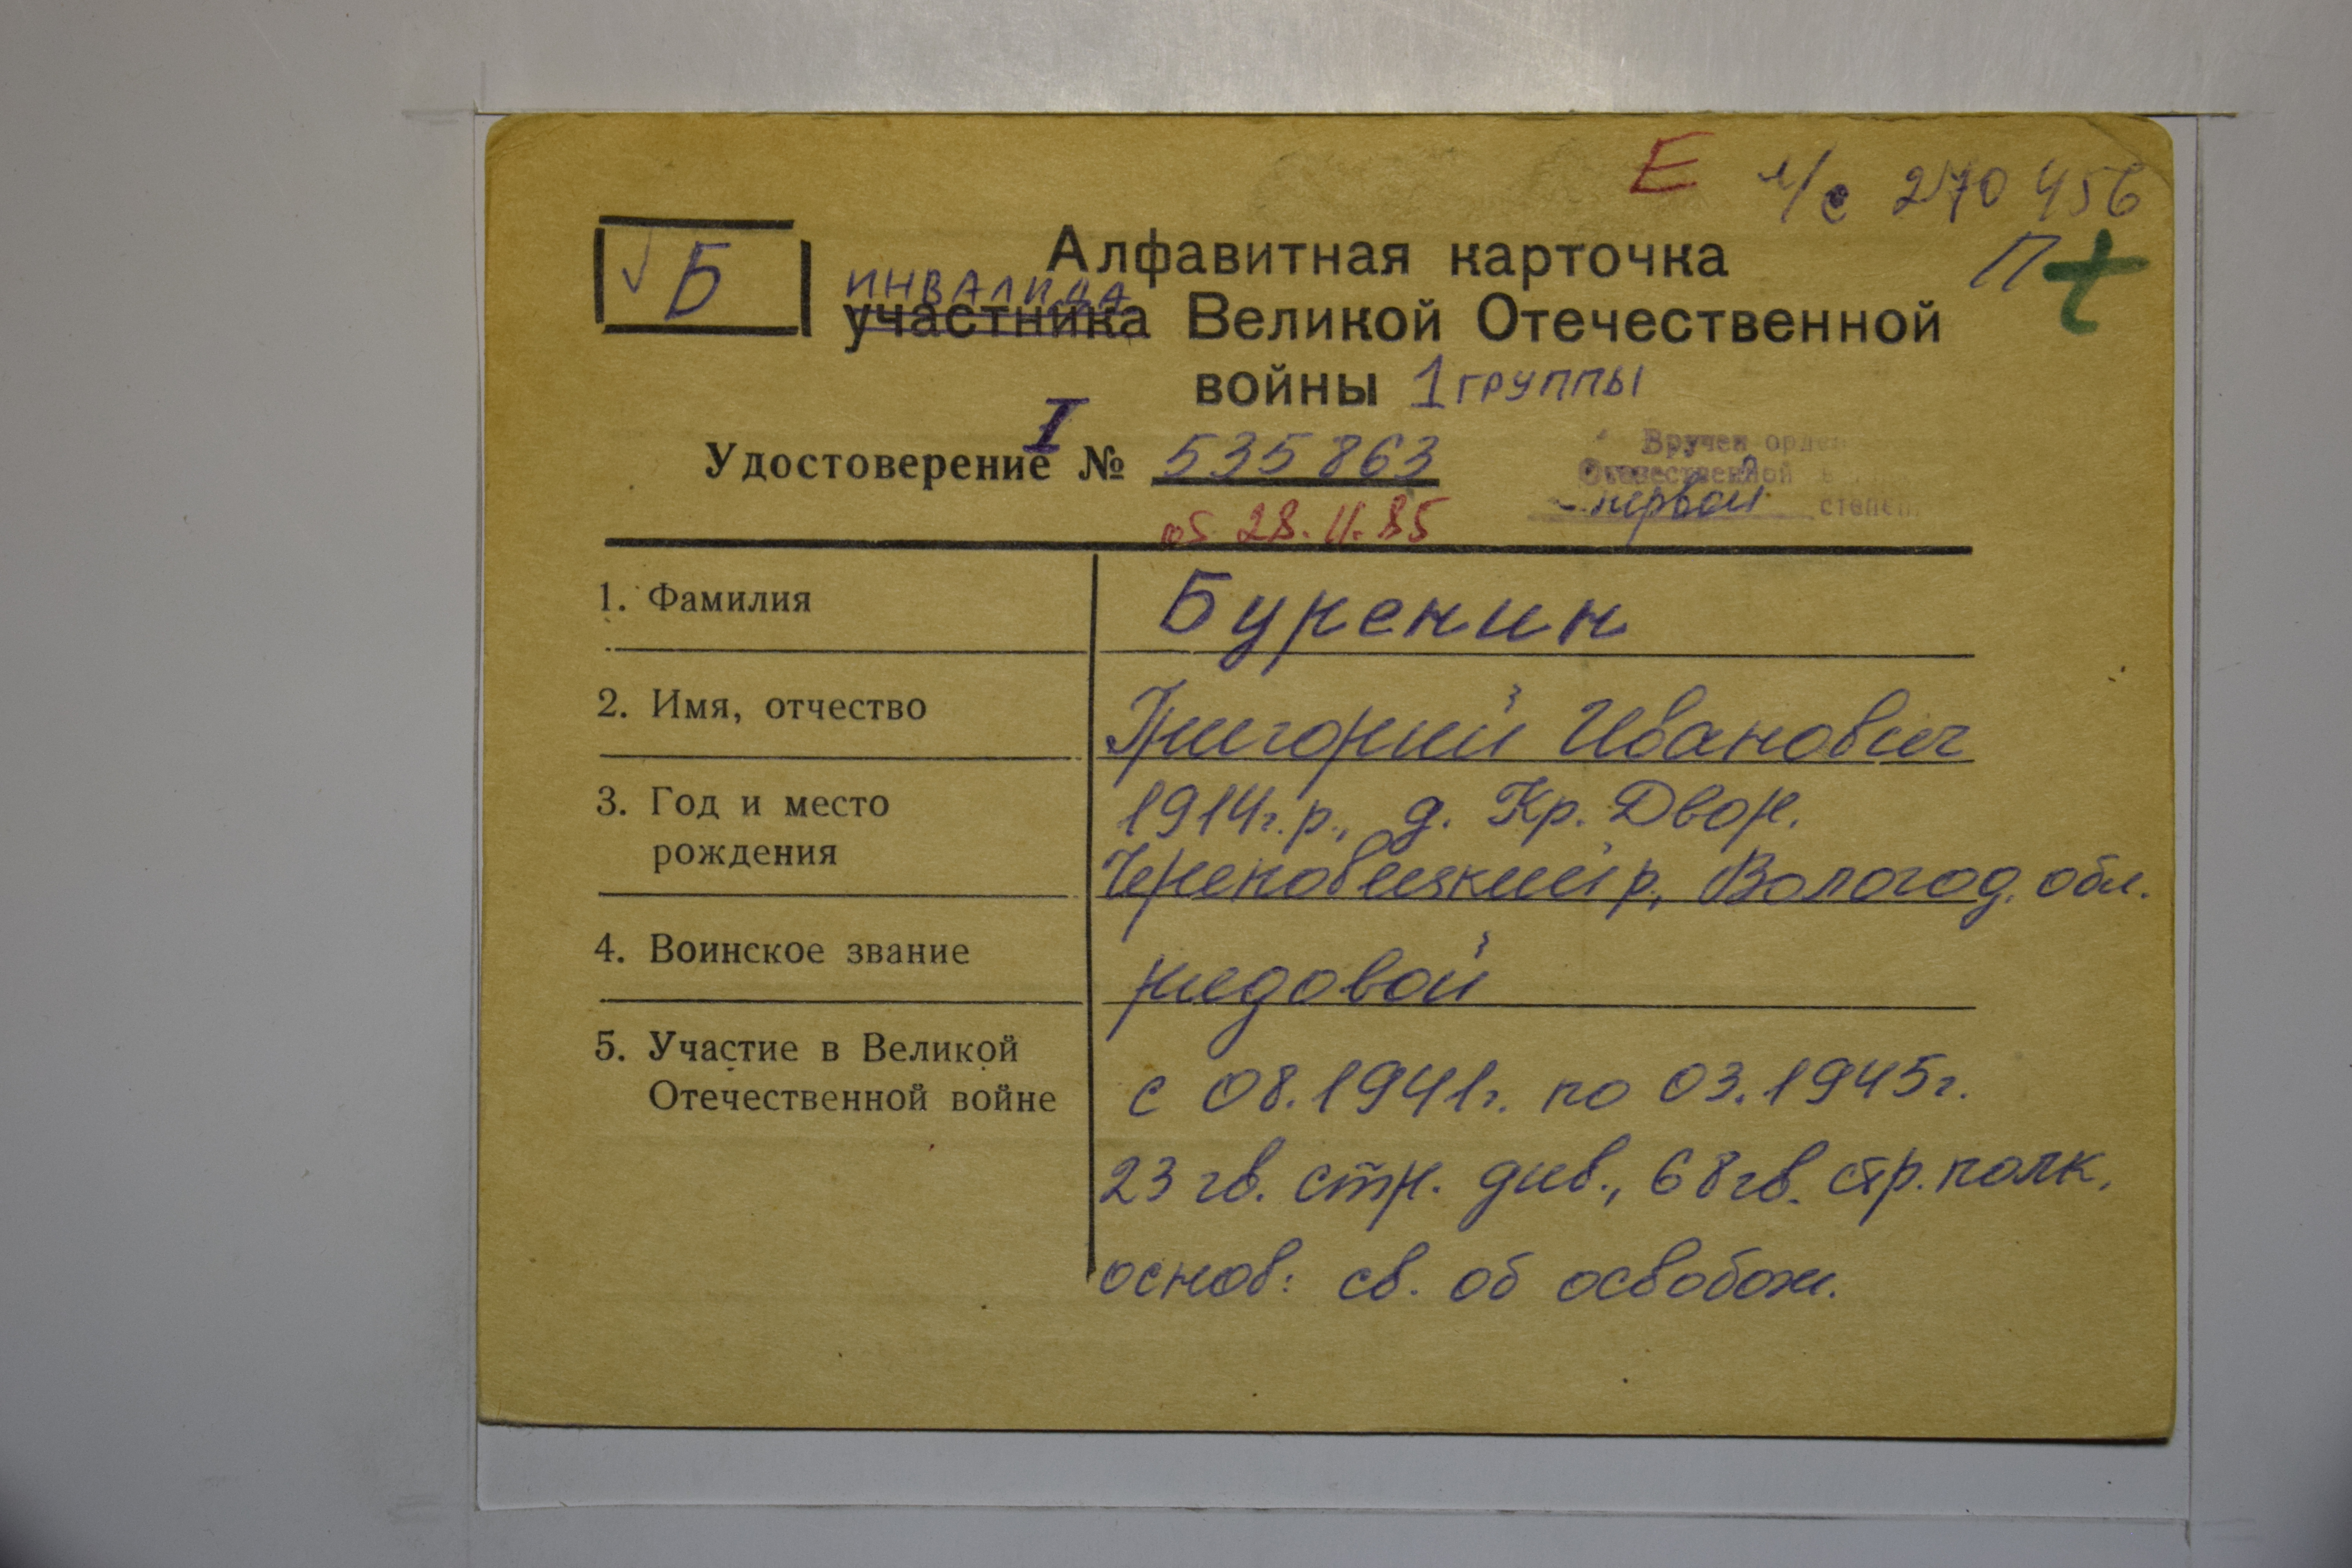 Е л/с 270 456
√ Б Алфавитная карточка П t
инвалида
участника Великой Отечественной
войны 1 группы
I
Удостоверение № 535863
Вручен орден
Отечественной в
первой степен.
28.11.85
1. Фамилия Буренин
2. Имя, отчество Григорий Иванович
3. Год и место 1914г.р., д. Кр. Двор.
рождения р, Вологод. обл.
4. Воинское звание рядовой
5. Участие в Великой
Отечественной войне с 08.1941г. по 03.1945г.
23 гв. стр. див., 68 гв. стр. полк,
основ: св. об освобож.